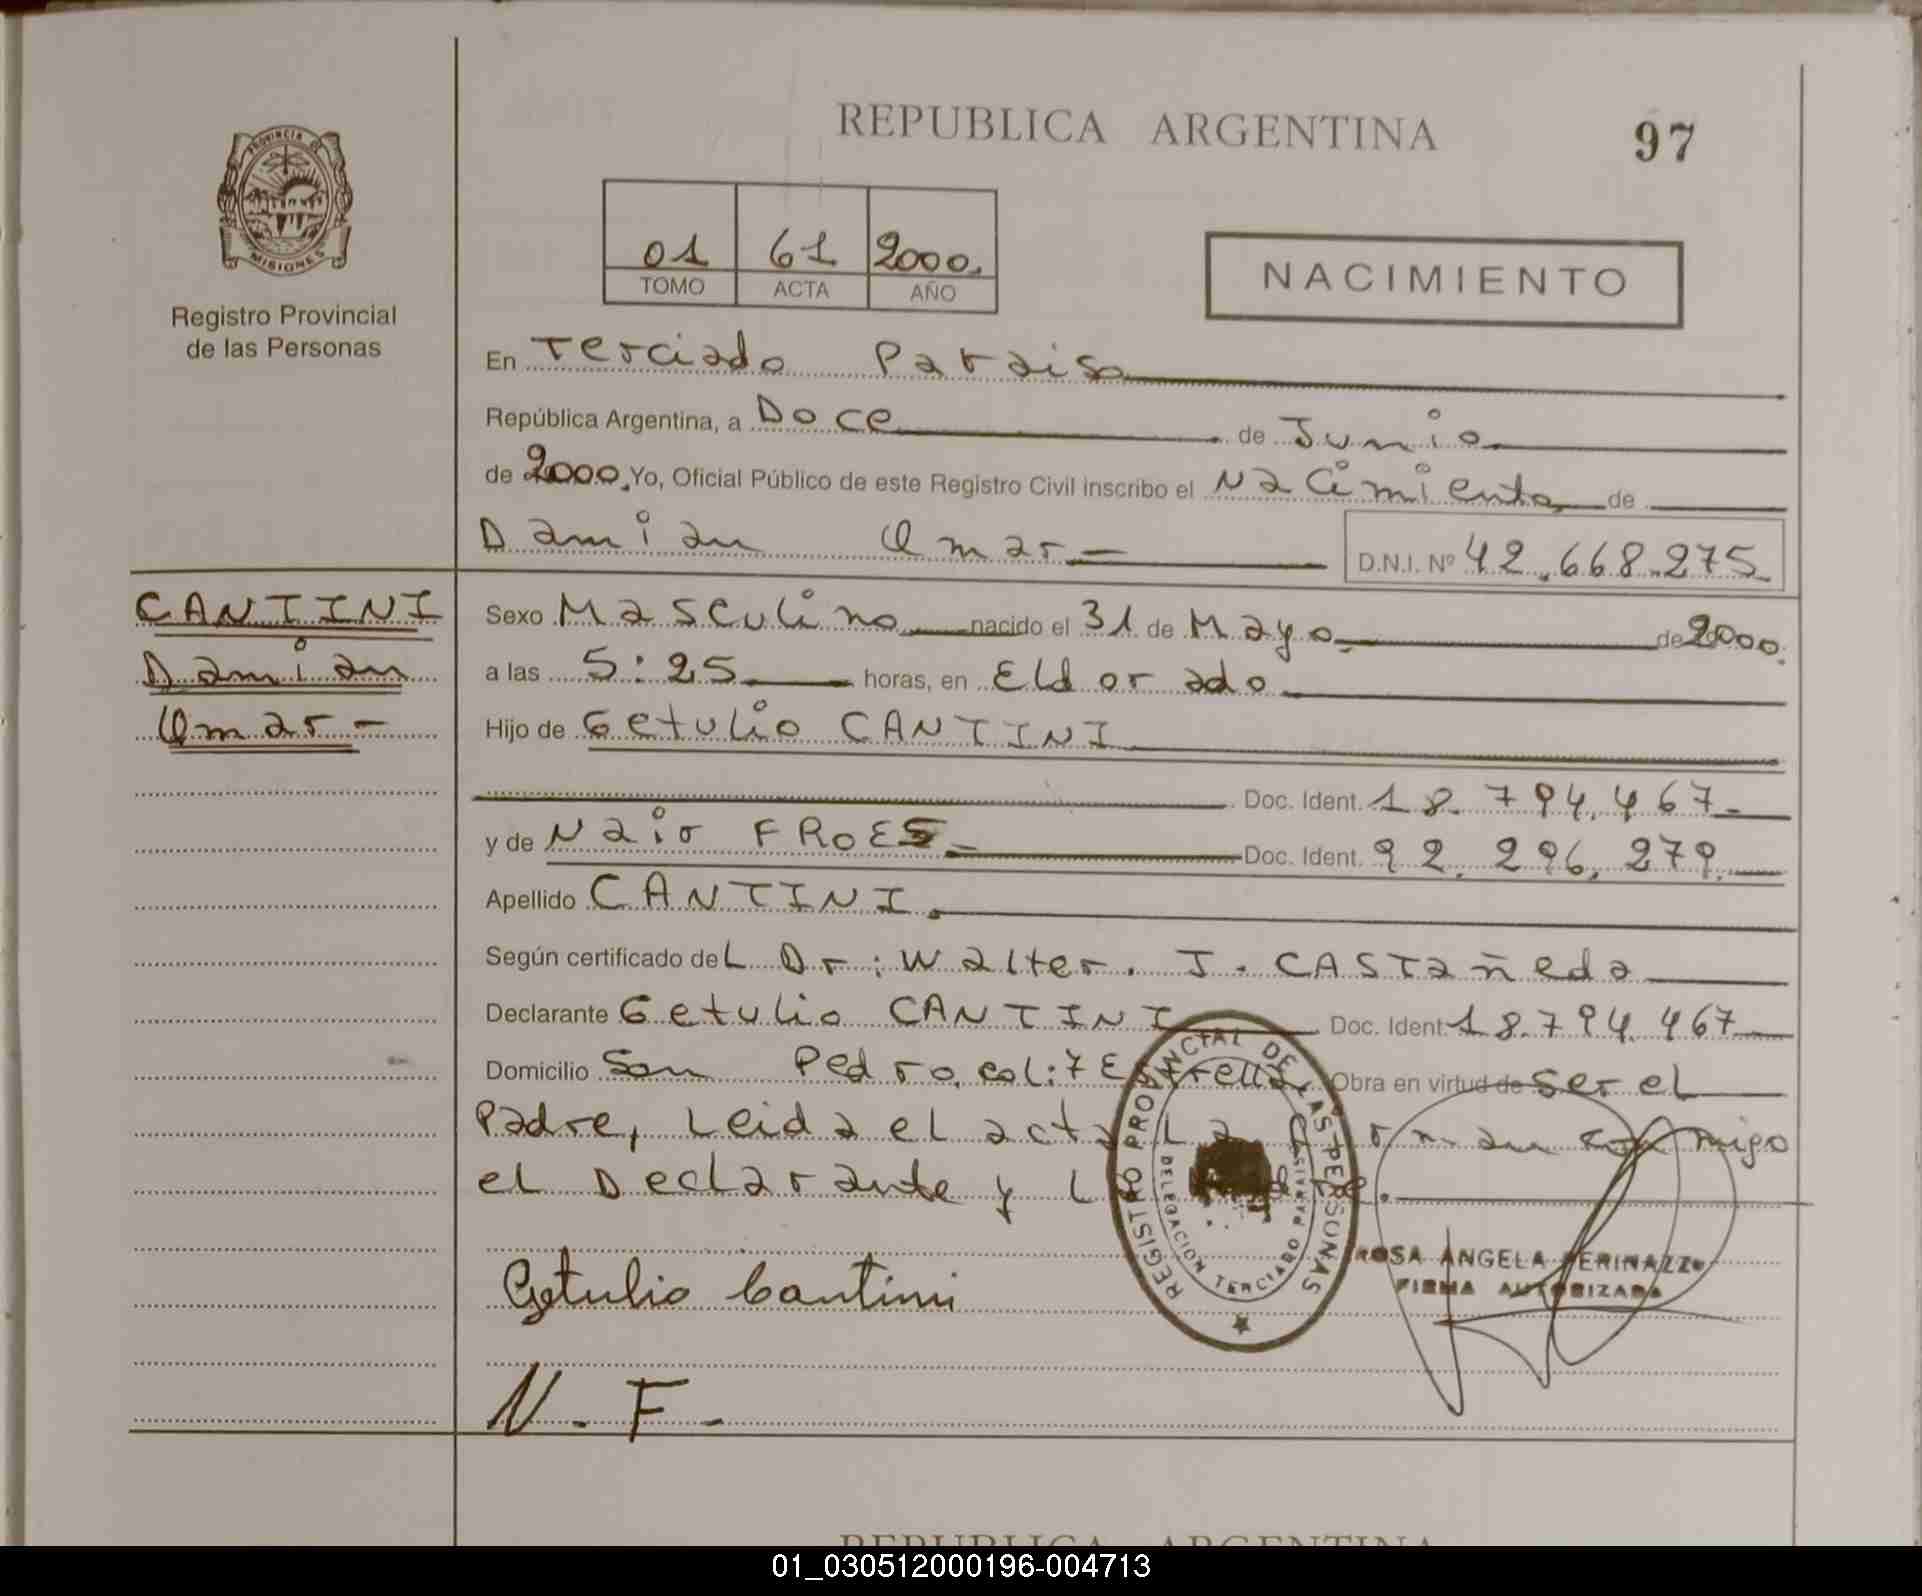 REPUBLICA ARGENTINA
97
PROVINCIA DE
MISIONES
Registro Provincial
de las Personas
01 61 2000.
TOMO ACTA AÑO
NACIMIENTO
En Terciado Paraiso
República Argentina, a Doce de Junio
de 2000. Yo, Oficial Público de este Registro Civil inscribo el Nacimiento de
Damian Omar
D.N.I. Nº 42.668.275
CANTINI
Damian
Omar -
Sexo Masculino nacido el 31 de Mayo de 2000.
a las 5:25 horas, en Eldorado
Hijo de Getulio CANTINI
Doc. Ident. 18.794.467
y de Nair FROES Doc. Ident. 92.296.279.
Apellido CANTINI.
Según certificado del Dr: Walter. J. CASTañeda
Declarante Getulio CANTINI Doc. Ident. 18.794.467
Domicilio San Pedro, col: 7 Estrella Obra en virtud de ser el
Padre, Leida el acta La firman conmigo
el Declarante y L
REGISTRO PROVINCIAL DE LAS PERSONAS
DELEGACION TERCIADO PARAISO
ROSA ANGELA PERINAZZO
FIRMA AUTORIZADA
Getulio Cantini
N. F.
REPUBLICA ARGENTINA
01_030512000196-004713